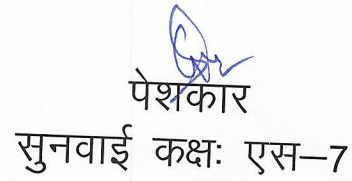 पेशकार
सुनवाई कक्षः एस–7